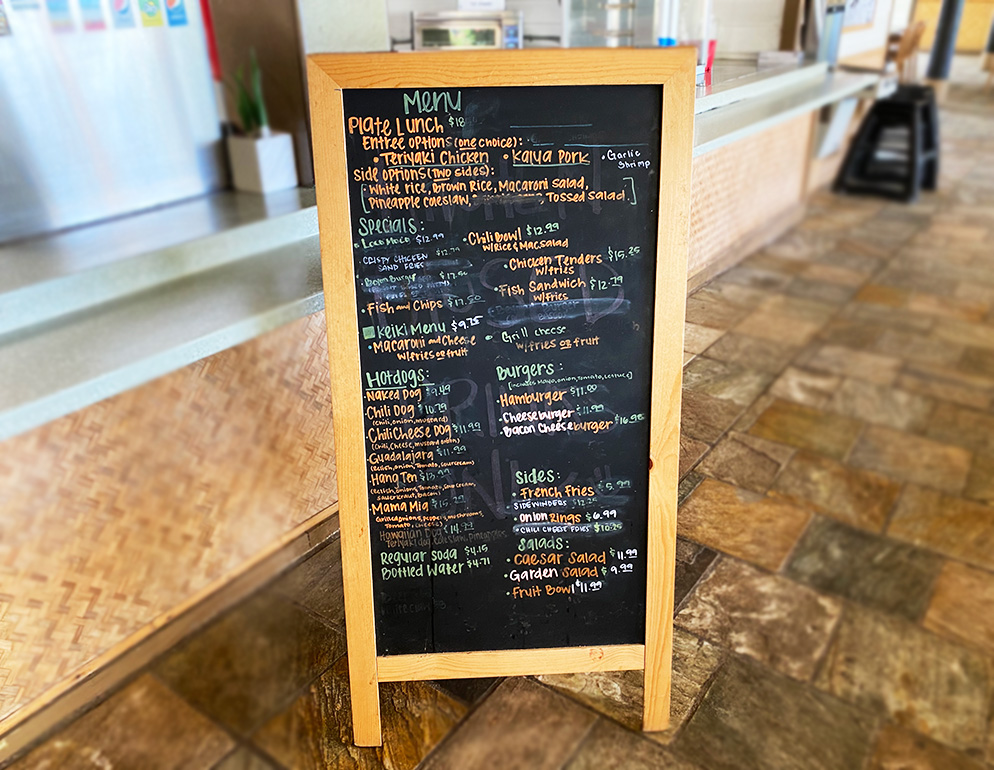 Menu
Plate Lunch $18
Entree options (one choice):
• Teriyaki Chicken • Kalua Pork • Garlic Shrimp
side options (two sides):
[White rice, Brown Rice, Macaroni Salad,
Pineapple coleslaw, Tossed Salad.]
Specials:
• Loco Moco $12.99
CRISPY CHICKEN
SAND FRIES $12.79
Burger $17.50
• Fish and Chips $17.50
• Chili Bowl $12.99
w/Rice & Mac Salad
• Chicken Tenders $15.25
w/fries
• Fish Sandwich $12.79
w/fries
Keiki Menu $9.75
• Macaroni and Cheese
w/fries or fruit
• Grill cheese
w/fries or fruit
Hotdogs:
Naked Dog $9.49
Chili Dog $10.79
(chili, onion, mustard)
Chili Cheese Dog $11.99
(Chili, Cheese, mustard, onion)
Guadalajara $11.99
(Relish, onion, Tomato, sourcream)
Hang Ten
(Relish, onions, Tomato, sour cream,
sauerkraut, bacon)
Mama Mia
peppers, mushrooms,
Tomato, cheese)
Hawaiian Dog $14.99
Teriyaki dog, coleslaw, pineapple
Regular Soda $4.15
Bottled Water $4.71
Burgers:
[includes Mayo, onion, Tomato, Lettuce]
• Hamburger $11.00
• Cheeseburger $11.99
• Bacon Cheeseburger $16.95
Sides:
• French Fries $5.99
SIDEWINDERS $12.25
• Onion Rings $6.99
• CHILI CHEESE FRIES $10.25
Salads:
• Caesar Salad $11.99
• Garden Salad $9.99
• Fruit Bowl $11.99